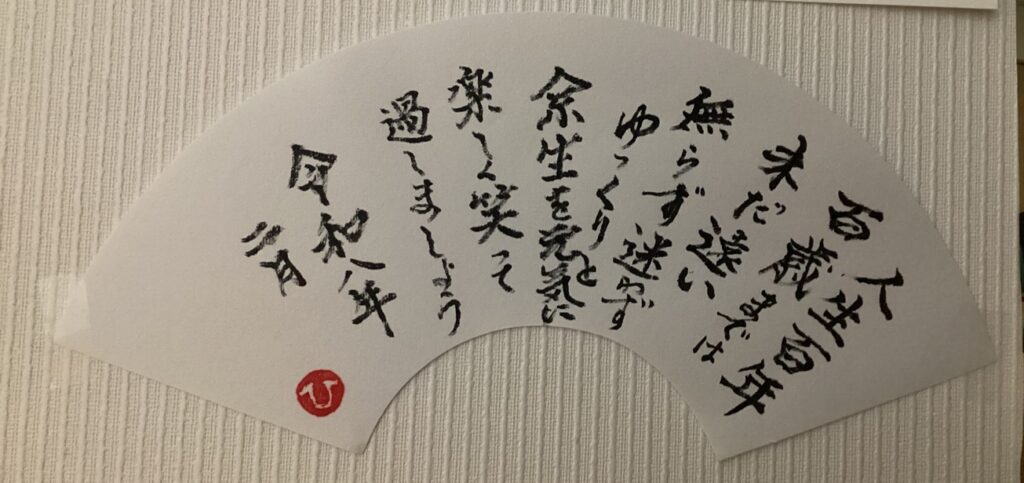 人生百年
百歳までは
未だ遠い
焦らず迷わず
ゆっくりと
余生を元気に
楽しく笑って
過しましょう
令和八年
二月
ひ